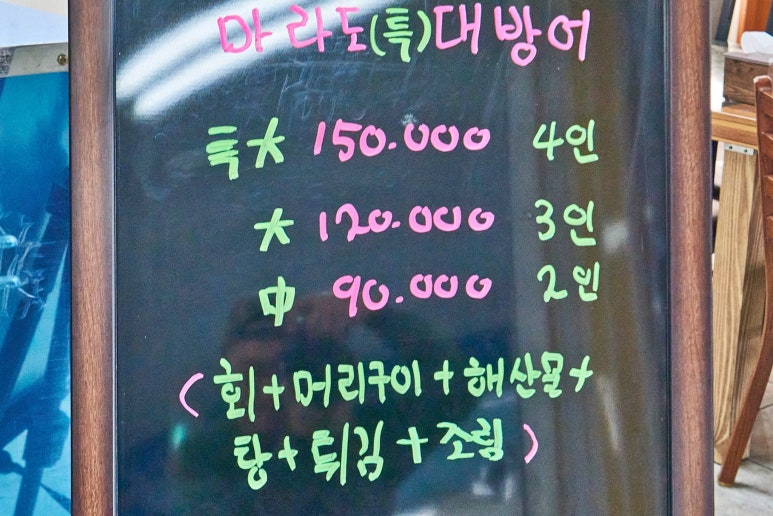 마라도(특)대방어
특大 150.000 4인
大 120.000 3인
中 90.000 2인
(회+머리구이+해산물+
탕+튀김+조림)